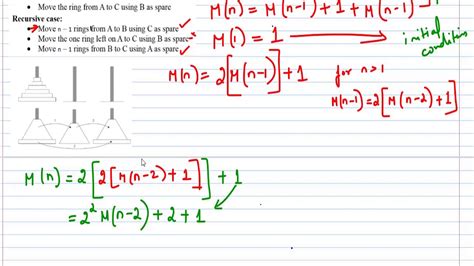 • Move the ring from A to C using B as spare
Recursive case:
• Move n – 1 rings from A to B using C as spare
• Move the one ring left on A to C using B as spare
• Move n – 1 rings from B to C using A as spare
M(n) = M(n-1) + 1 + M(n-1)
M(1) = 1
initial
M(n) = 2[M(n-1)] + 1 for n>1
M(n-1) = 2[M(n-2)+1]
M(n) = 2[2[M(n-2)+1]] + 1
= 2² M(n-2) + 2 + 1